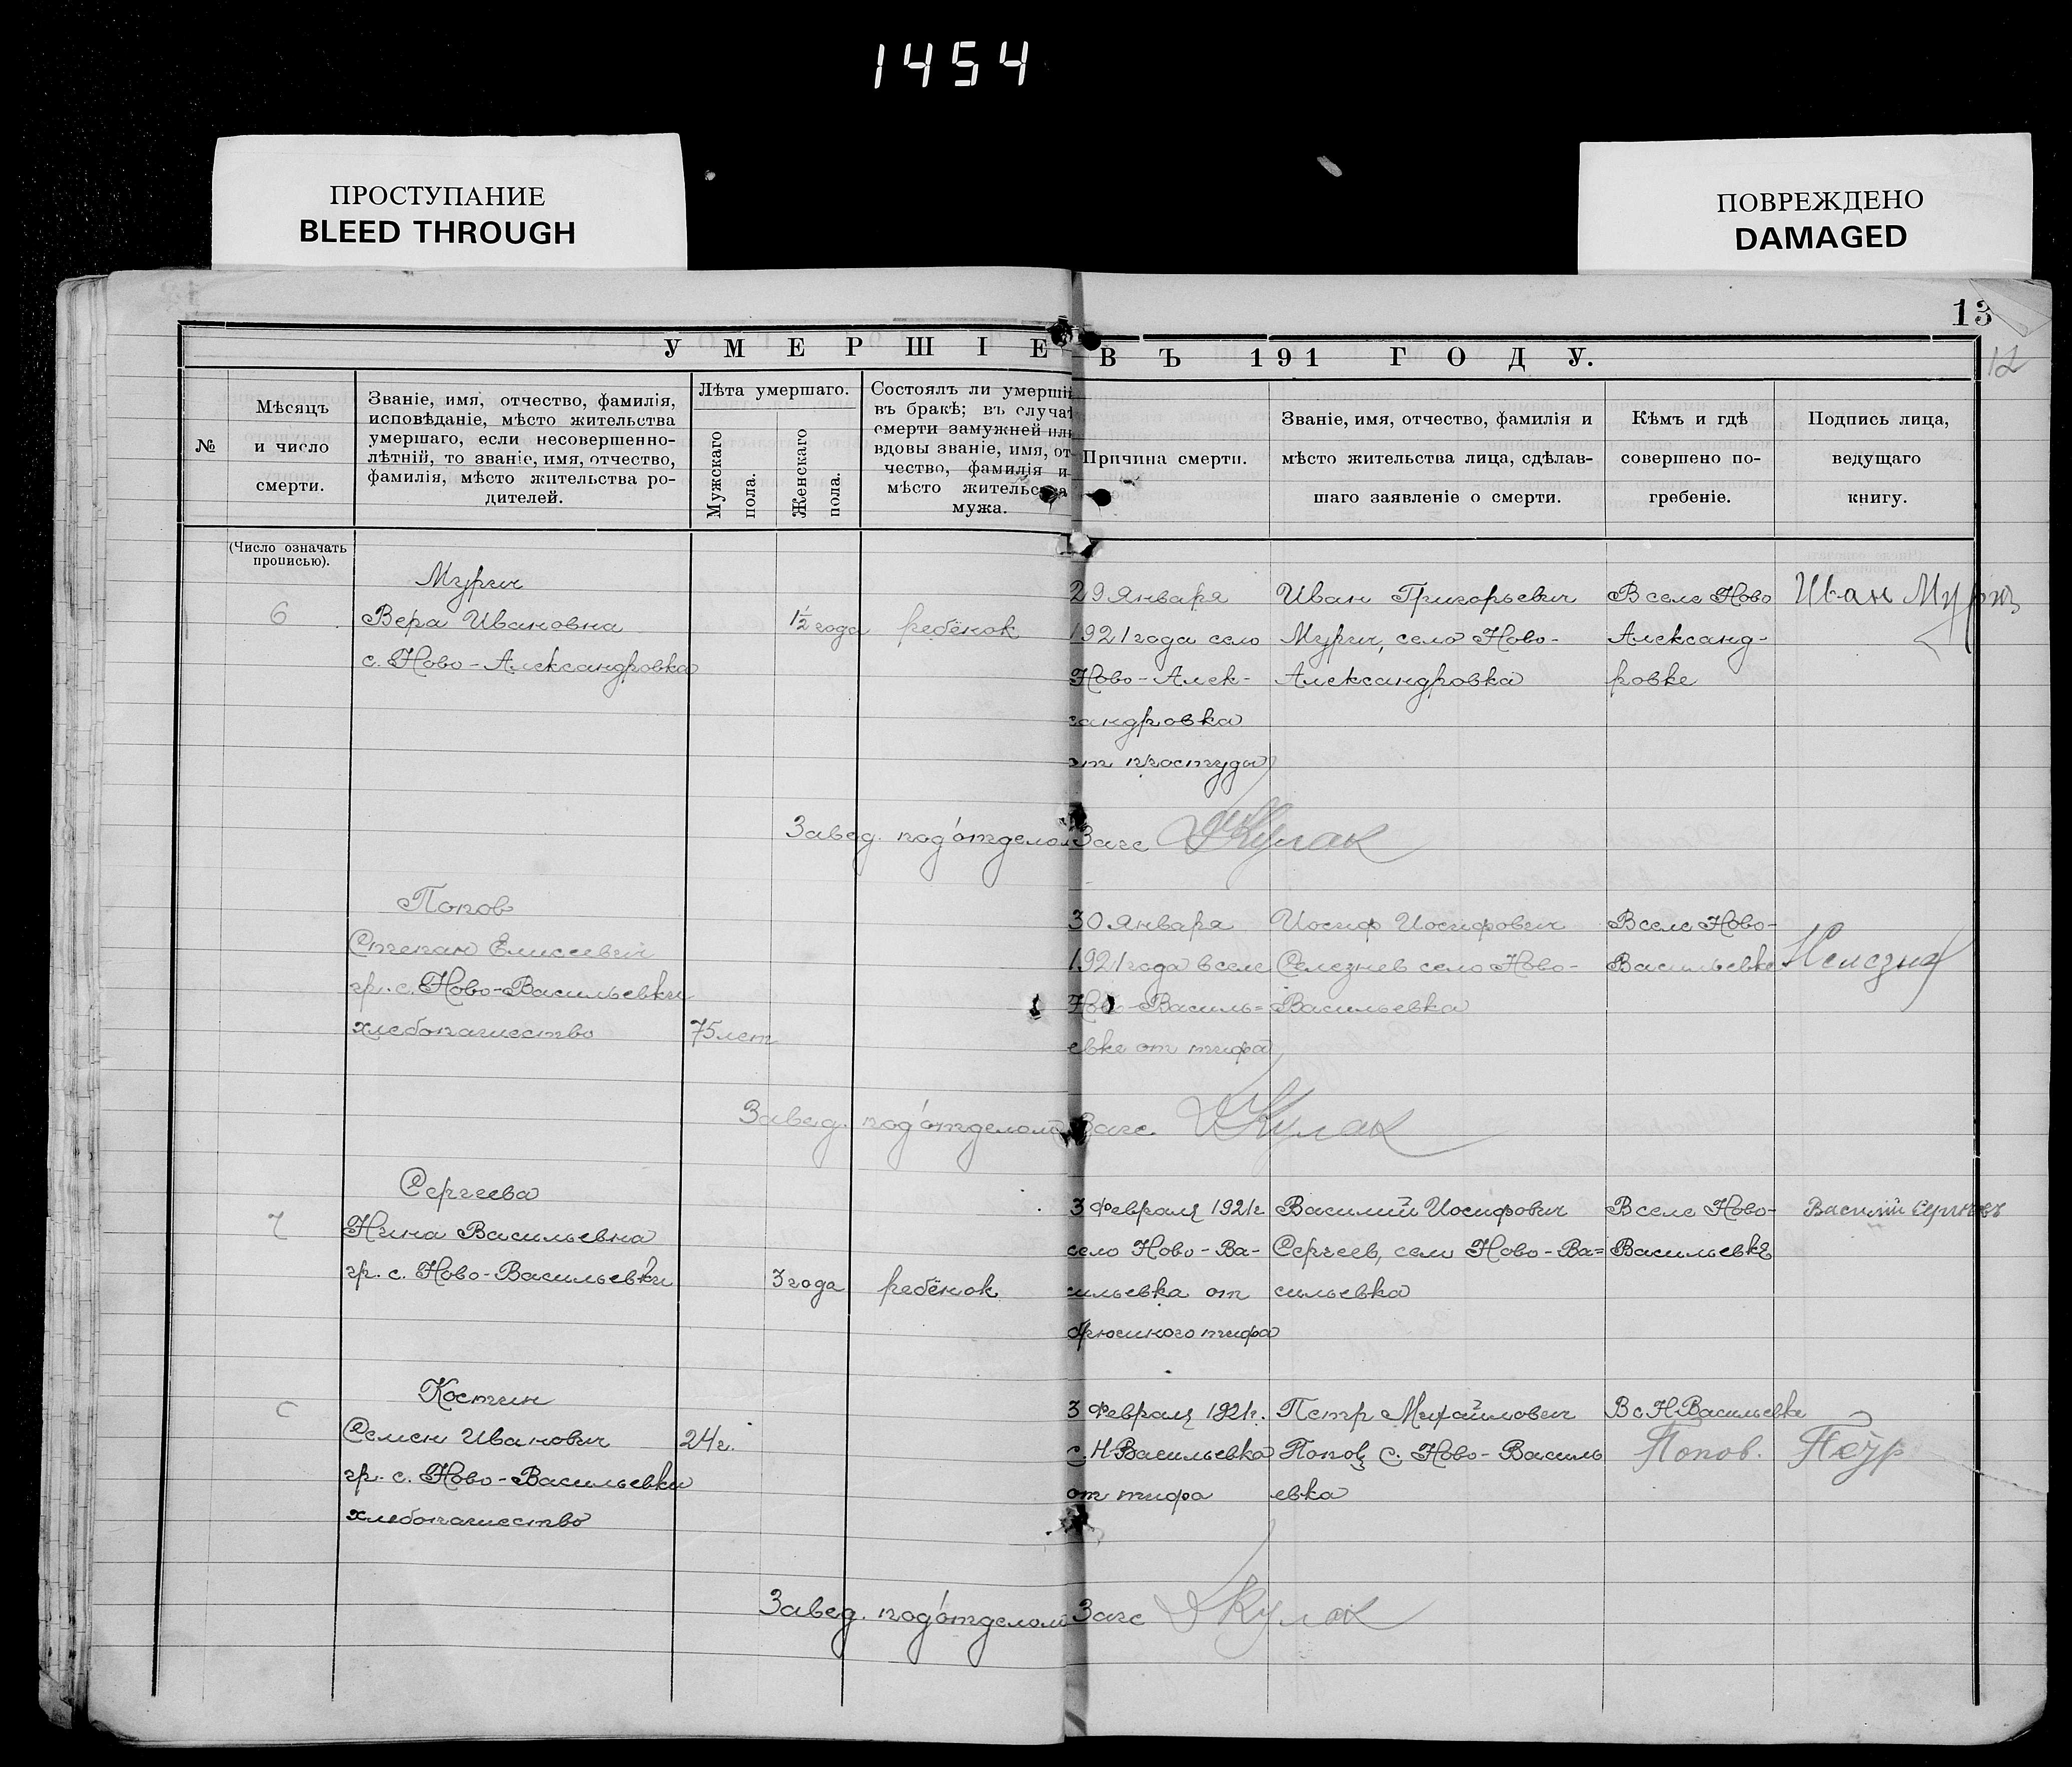 1454
ПРОСТУПАНИЕ
BLEED THROUGH
ПОВРЕЖДЕНО
DAMAGED
13
12
УМЕРШІЕ ВЪ 191 ГОДУ.
№
Мѣсяцъ
и число
смерти.
Званіе, имя, отчество, фамилія,
исповѣданіе, мѣсто жительства
умершаго, если несовершенно-
лѣтній, то званіе, имя, отчество,
фамилія, мѣсто жительства ро-
дителей.
Лѣта умершаго.
Мужскаго
пола.
Женскаго
пола.
Состоялъ ли умершій
въ бракѣ; въ случаѣ
смерти замужней или
вдовы званіе, имя, от-
чество, фамилія и
мѣсто жительства
мужа.
Причина смерти.
Званіе, имя, отчество, фамилія и
мѣсто жительства лица, сдѣлав-
шаго заявленіе о смерти.
Кѣмъ и гдѣ
совершено по-
гребеніе.
Подпись лица,
ведущаго
книгу.
(Число означать
прописью).
6
Мурич
Вера Ивановна
с. Ново-Александровка
1½ года
ребёнок
29 Января
1921 года село
Ново-Алек-
сандровка
от простуды
Иван Григорьевич
Мурич, село Ново-
Александровка
В селе Ново
Александ-
ровке
Иван
Завед. под'отделом Загс Кулак
Попов
Степан Елисеевич
гр. с. Ново-Васильевки
хлебопашество
75 лет
30 Января
1921 года в селе
Ново-Василь=
евке от тифа
Иосиф Иосифович
Селезнев село Ново-
Васильевка
В селе Ново-
Васильевке
Завед. под'отделом Загс Кулак
Сергеева
Нина Васильевна
гр. с. Ново-Васильевки
3 года
ребёнок
3 Февраля 1921г
село Ново-Ва-
сильевка от
брюшного тифа
Василий Иосифович
Сергеев, село Ново-Ва=
сильевка
В селе Ново-
Васильевке
Василий Сергѣевъ
Костин
Семен Иванович
гр. с. Ново-Васильевки
хлебопашество
24г.
3 Февраля 1921г.
с. Н-Васильевка
от тифа
Петр Михайлович
Попов с. Ново-Василь
евка
В с Н Васильевке
Попов. Петр
Завед. под'отделом Загс Кулак